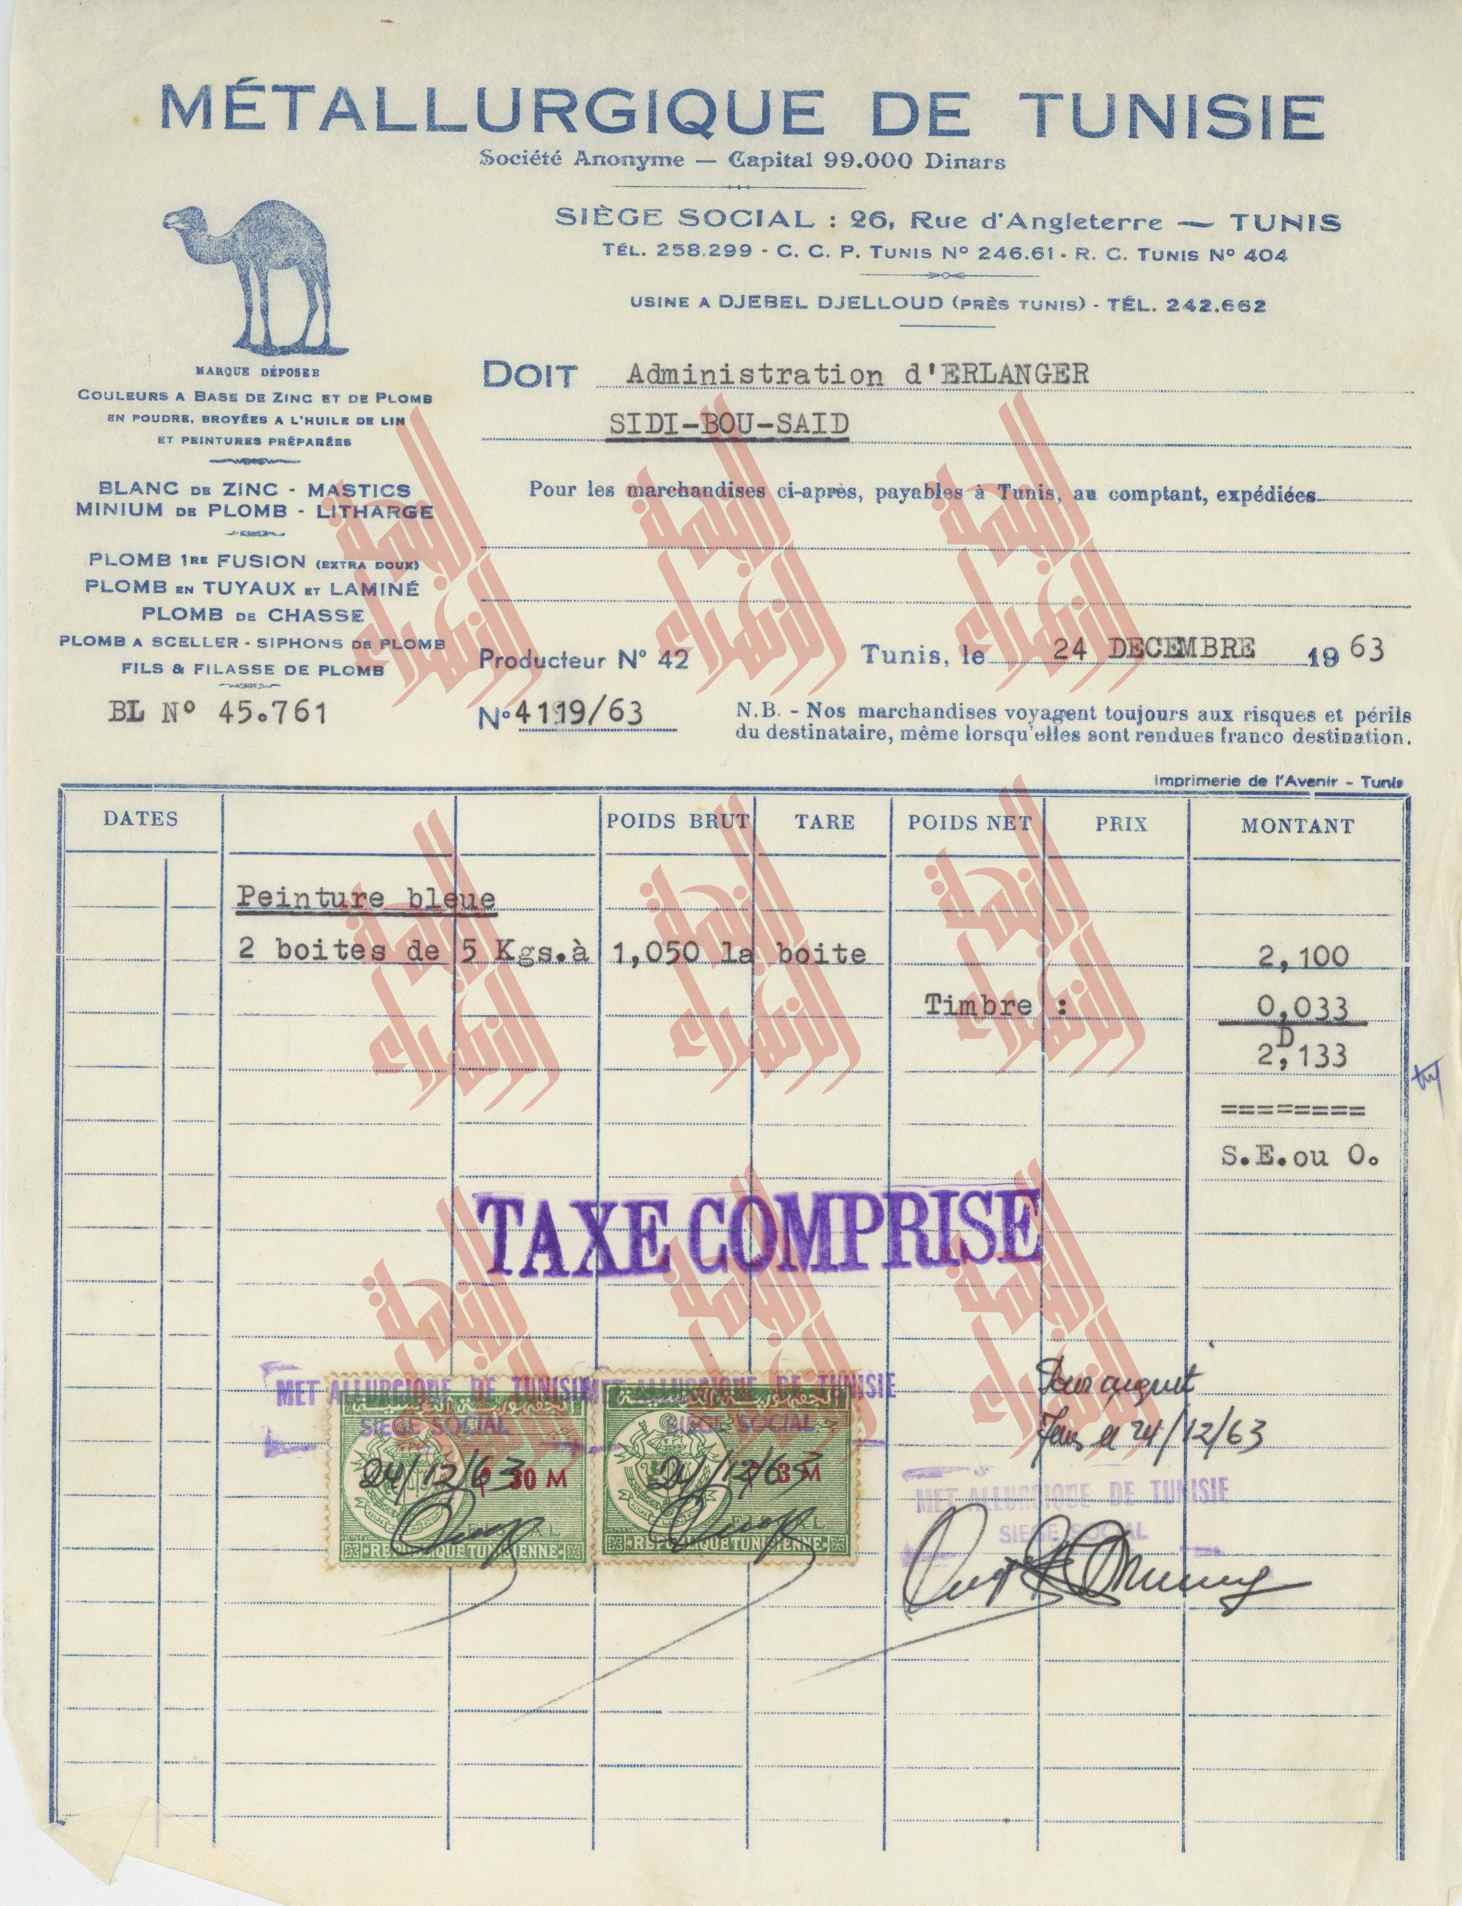 MÉTALLURGIQUE DE TUNISIE
Société Anonyme — Capital 99.000 Dinars
SIÈGE SOCIAL : 26, Rue d'Angleterre — TUNIS
TÉL. 258.299 - C. C. P. TUNIS Nº 246.61 - R. C. TUNIS Nº 404
USINE A DJEBEL DJELLOUD (PRÈS TUNIS) - TÉL. 242.662
MARQUE DÉPOSÉE
COULEURS A BASE DE ZINC ET DE PLOMB
EN POUDRE, BROYÉES A L'HUILE DE LIN
ET PEINTURES PRÉPARÉES
BLANC DE ZINC - MASTICS
MINIUM DE PLOMB - LITHARGE
PLOMB 1RE FUSION (EXTRA DOUX)
PLOMB EN TUYAUX ET LAMINÉ
PLOMB DE CHASSE
PLOMB A SCELLER - SIPHONS DE PLOMB
FILS & FILASSE DE PLOMB
BL Nº 45.761
DOIT Administration d'ERLANGER
SIDI-BOU-SAID
Pour les marchandises ci-après, payables à Tunis, au comptant, expédiées
Producteur Nº 42
Tunis, le 24 DECEMBRE 1963
Nº 4119/63
N.B. - Nos marchandises voyagent toujours aux risques et périls
du destinataire, même lorsqu'elles sont rendues franco destination.
Imprimerie de l'Avenir - Tunis
DATES POIDS BRUT TARE POIDS NET PRIX MONTANT
Peinture bleue
2 boites de 5 Kgs. à 1,050 la boite 2,100
Timbre : 0,033
D
2,133
========
S.E.ou O.
TAXE COMPRISE
Pour acquit
24/12/63
METALLURGIQUE DE TUNISIE
SIEGE SOCIAL
24/12/63
30 M
REPUBLIQUE TUNISIENNE
METALLURGIQUE DE TUNISIE
SIEGE SOCIAL
24/12/63
3 M
REPUBLIQUE TUNISIENNE
METALLURGIQUE DE TUNISIE
SIEGE SOCIAL